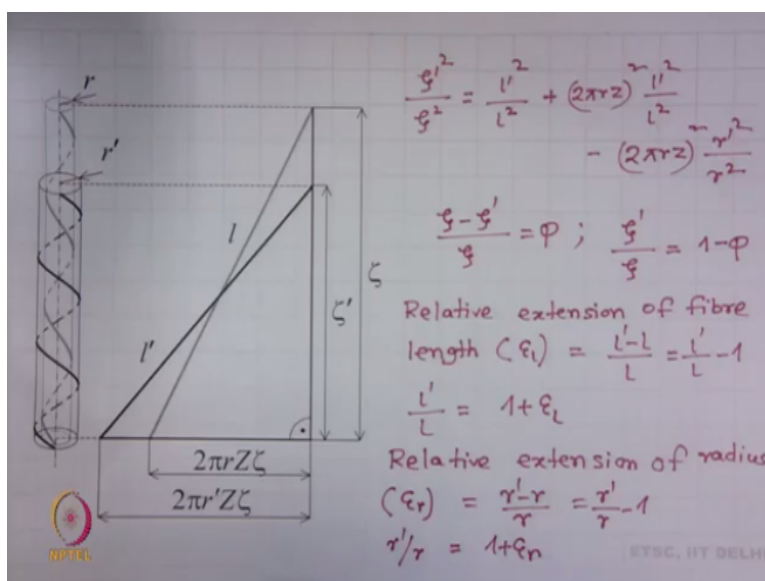 r
r'
l
l'
ζ'
ζ
2πrZζ
2πr'Zζ
NPTEL
ζ'²/ζ² = l'²/l² + (2πrz)² l'²/l²
- (2πrz)² r'²/r²
(ζ-ζ')/ζ = φ ; ζ'/ζ = 1-φ
Relative extension of fibre
length (ε_l) = (l'-l)/l = l'/l -1
l'/l = 1+ε_l
Relative extension of radius
(ε_r) = (r'-r)/r = r'/r -1
r'/r = 1+ε_r
ETSC, IIT DELHI